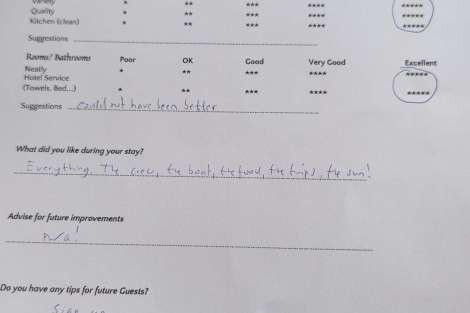 Variety * ** *** **** *****
Quality * ** *** **** *****
Kitchen (clean) * ** *** **** *****
Suggestions
Rooms/ Bathrooms Poor OK Good Very Good Excellent
Neatly * ** *** **** *****
Hotel Service
(Towels, Bed...) * ** *** **** *****
Suggestions could not have been better
What did you like during your stay?
Everything. The crew, the boat, the food, the trips, the sun!
Advise for future improvements
n/a!
Do you have any tips for future Guests?
Sign up